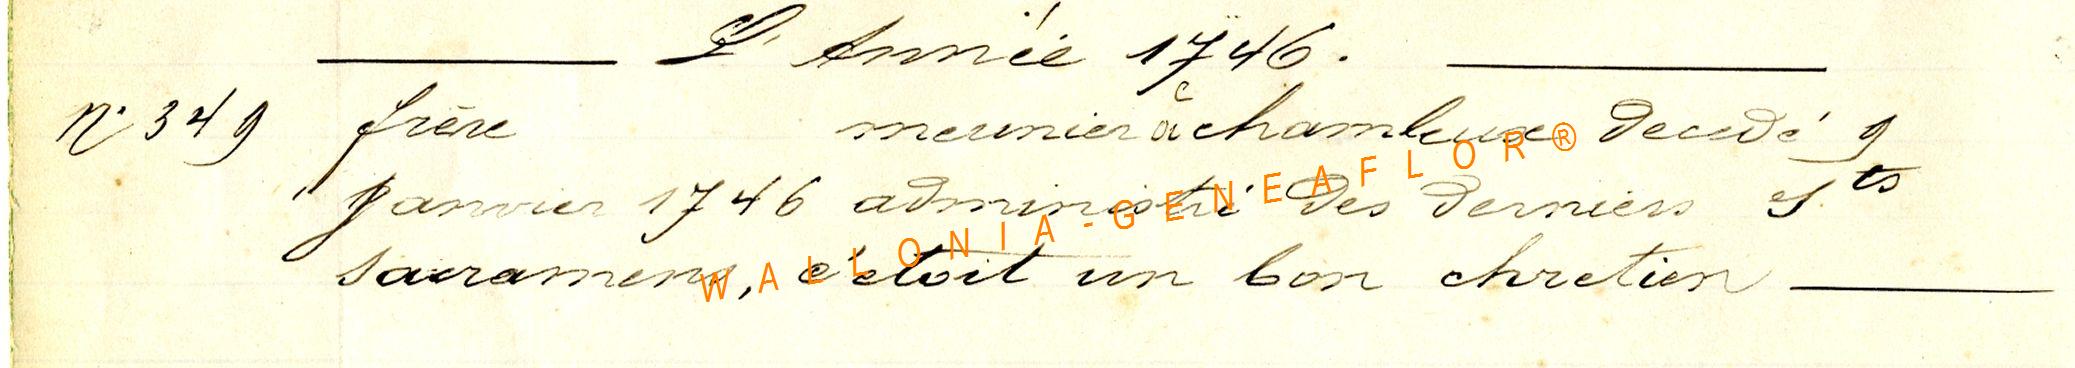 L'Année 1746.
n° 349 frère meunier à chamleux decedé 9
Janvier 1746 administré des derniers sts
sacramens, c'etoit un bon chretien
WALLONIA-GENEAFLOR®